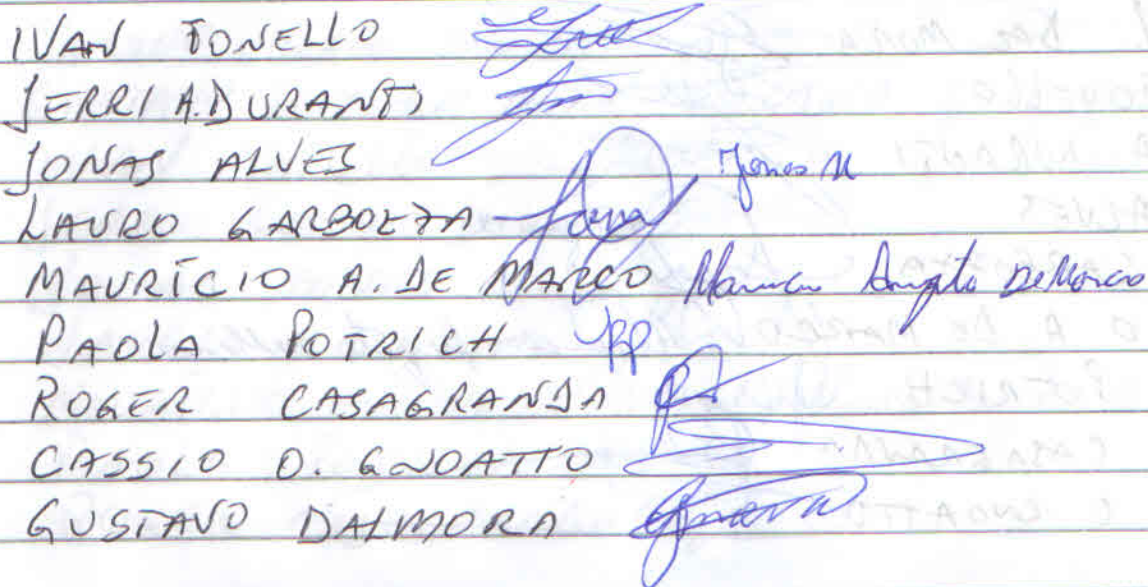 IVAN TONELLO
JERRI A. DURANTI
JONAS ALVES Jonas Al
LAURO GARBOZZA
MAURÍCIO A. DE MARCO Mauricio Angelo DeMarco
PAOLA POTRICH PP
ROGER CASAGRANDA
CASSIO O. GNOATTO
GUSTAVO DALMORA